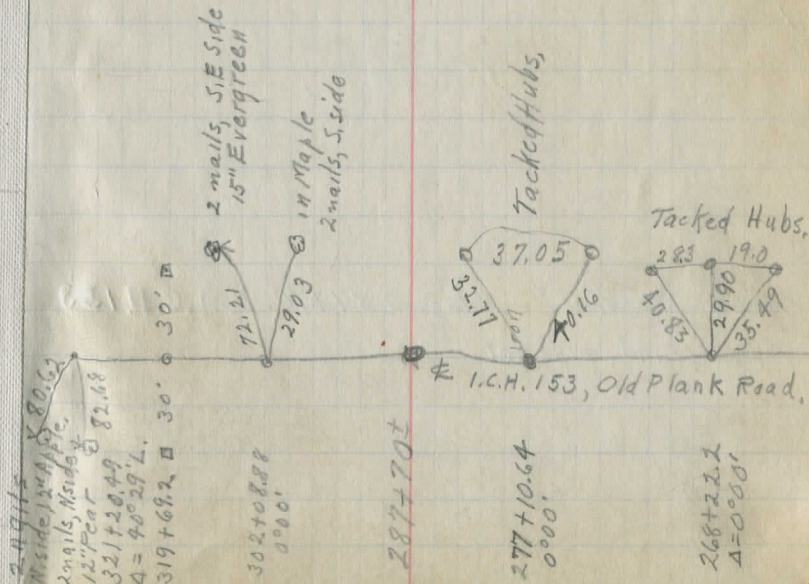 2 nails
N. side, 12" Apple,
2 nails, N. side
12" Pear
321+20.49
Δ = 40°29' L.
319+69.2
80.62
82.68
30'
30'
2 nails, S.E Side
15" Evergreen
in Maple
2 nails, S. side
72.21
29.03
302+08.88
0°00'
287+70±
Tacked Hubs,
37.05
32.77
40.16
iron
℄ I.C.H. 153, Old Plank Road.
277+10.64
0°00'
Tacked Hubs,
283
19.0
40.83
29.90
35.49
268+22.2
Δ=0°00'